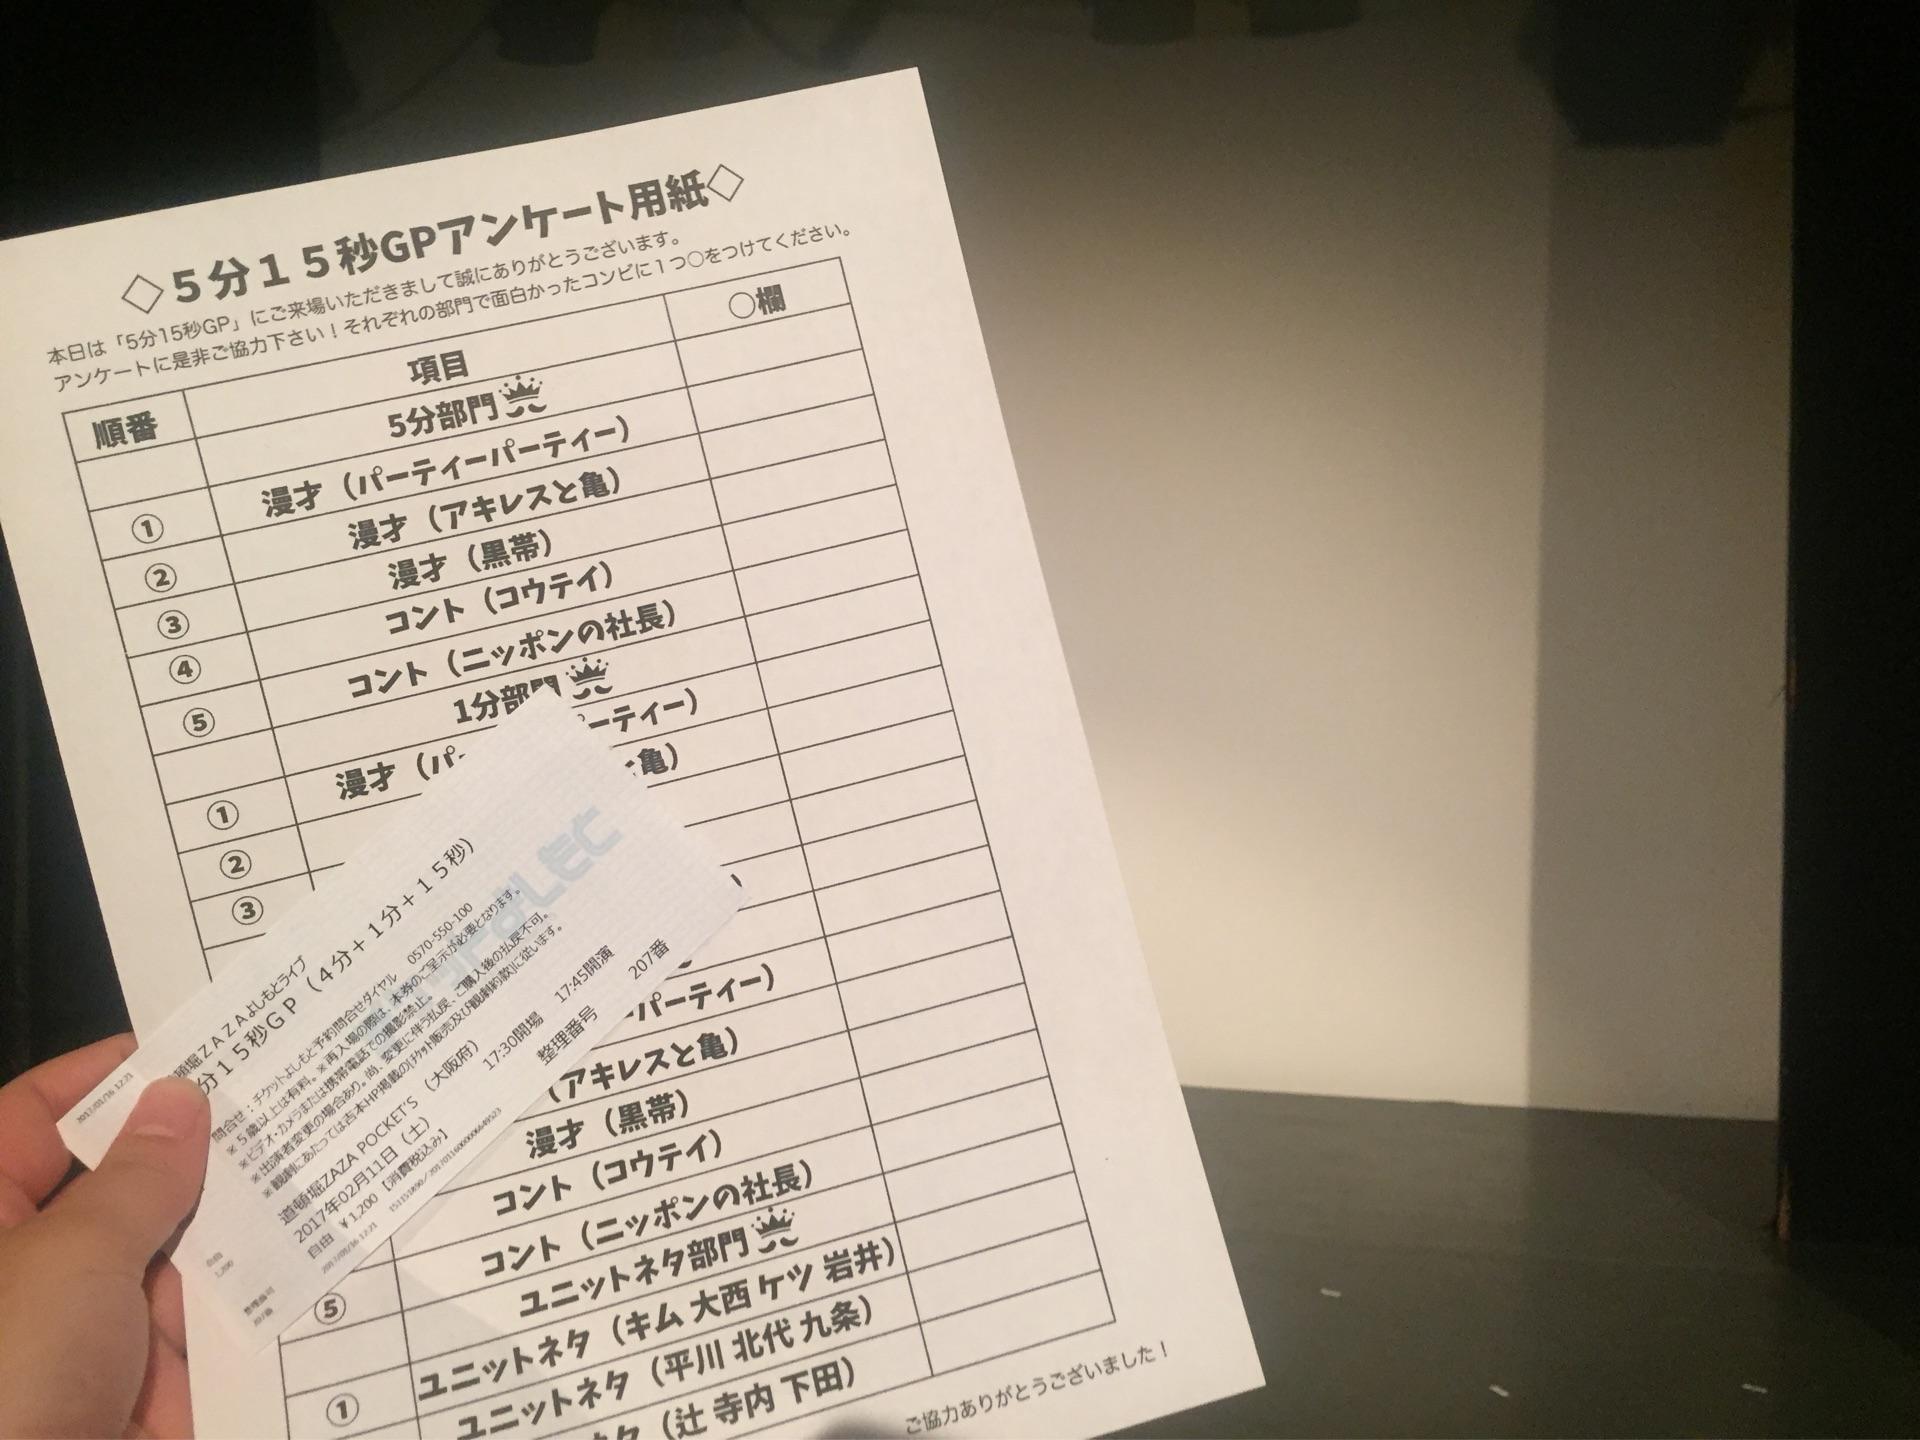 ◇５分１５秒GPアンケート用紙◇
本日は「5分15秒GP」にご来場いただきまして誠にありがとうございます。
アンケートに是非ご協力下さい！それぞれの部門で面白かったコンビに１つ○をつけてください。
順番 項目 ○欄
5分部門
① 漫才（パーティーパーティー）
② 漫才（アキレスと亀）
③ 漫才（黒帯）
④ コント（コウテイ）
⑤ コント（ニッポンの社長）
1分部門
① 漫才（パーティー）
② 亀）
③
パーティー）
（アキレスと亀）
漫才（黒帯）
コント（コウテイ）
⑤ コント（ニッポンの社長）
ユニットネタ部門
① ユニットネタ（キム 大西 ケツ 岩井）
ユニットネタ（平川 北代 九条）
ネタ（辻 寺内 下田）
ご協力ありがとうございました！
頓堀ＺＡＺＡよしもとライブ
分１５秒ＧＰ（４分＋１分＋１５秒）
問合せ：チケットよしもと予約問合せダイヤル 0570-550-100
※５歳以上は有料。※再入場の際は、本券のご呈示が必要となります。
※ビデオ・カメラまたは携帯電話での撮影禁止。
※出演者変更の場合あり。尚、変更に伴う払戻、ご購入後の払戻不可。
※観劇にあたっては吉本HP掲載の[ﾁｹｯﾄ販売及び観劇約款]に従います。
道頓堀ZAZA POCKET'S （大阪府）
2017年02月11日（土） 17:30開場 17:45開演
自由 ￥1,200 【消費税込み】 整理番号 207番
2017/01/16 12:21
2017/01/16 12:21
自由
1,200
整理番号
207番